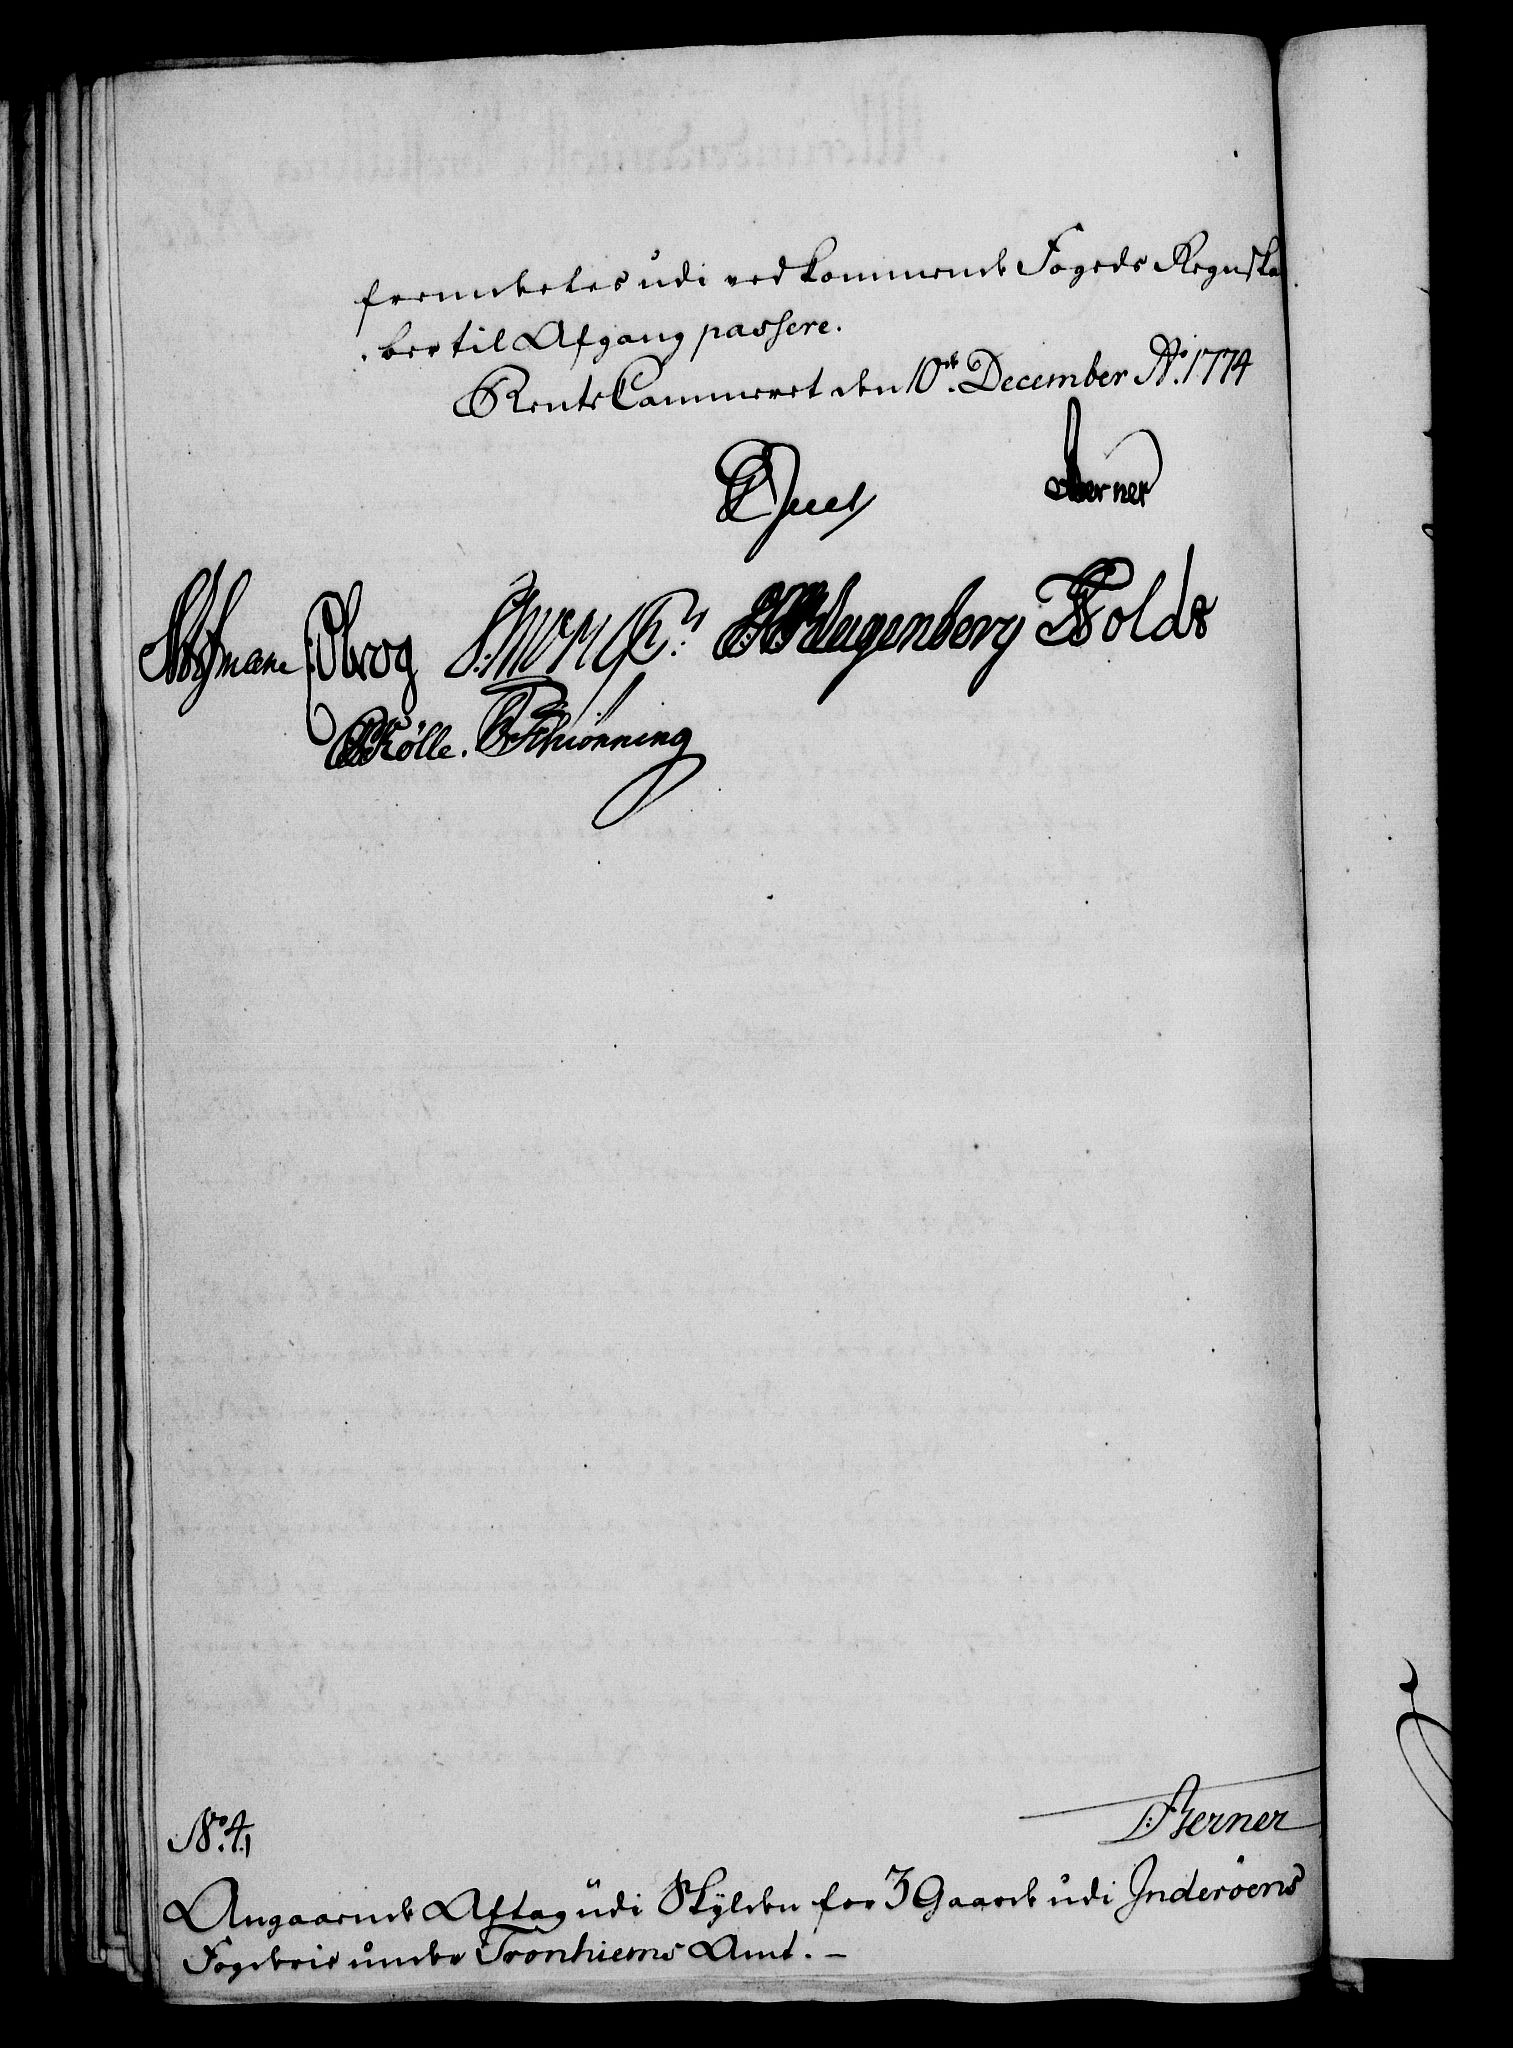 fremdeeles udi vedkommende Fogeds Regnska
ber til Afgang passere.
RenteCammeret den 10de December Ao. 1774
Juel Berner
Hofmann Obrog Klugenberg Holds
Kølle. Schiønning
Berner
No. 4.
Angaaende Aftag udi Skylden for 3 Gaarde udi Inderöens
Fogderie under Tronhiems Amt. —